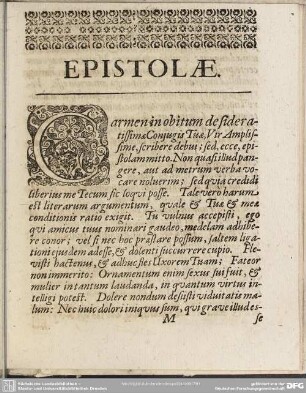 EPISTOLÆ.
Carmen in obitum desideratissimæ
Conjugis Tuæ, Vir Amplissime,
scribere debui; sed, ecce, epistolam
mitto. Non quasi illud pangere,
aut ad metrum verba vocare
noluerim; sed quia credidi
liberius me Tecum sic loqui posse. Tale vero harum
est literarum argumentum, quale & Tuæ & meæ
conditionis ratio exigit. Tu vulnus accepisti, ego
qui amicus tuus nominari gaudeo, medelam adhibere
conor; vel si nec hoc præstare possum, saltem ligationi
ejusdem adesse, & dolenti succurrere cupio. Flevisti
hactenus, & adhuc fles Uxorem Tuam; Fateor
non immerito: Ornamentum enim sexus sui fuit, &
mulier in tantum laudanda, in quantum virtus intelligi
potest. Dolere nondum desiisti viduitatis malum:
Nec huic dolori iniquus sum, qui grave illud es-
M
se